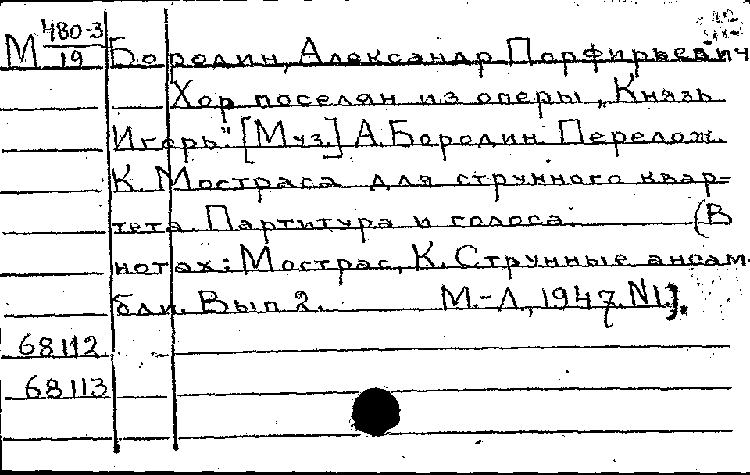 М 480-3/19 Бородин, Александр Порфирьевич
Хор поселян из оперы „Князь
Игорь". [Муз.] А. Бородин. Перелож.
К. Мостраса для струнного квар-
тета. Партитура и голоса. (В
нотах: Мострас, К. Струнные ансам-
бли. Вып 2. М.-Л., 1947. N1).
68112
68113